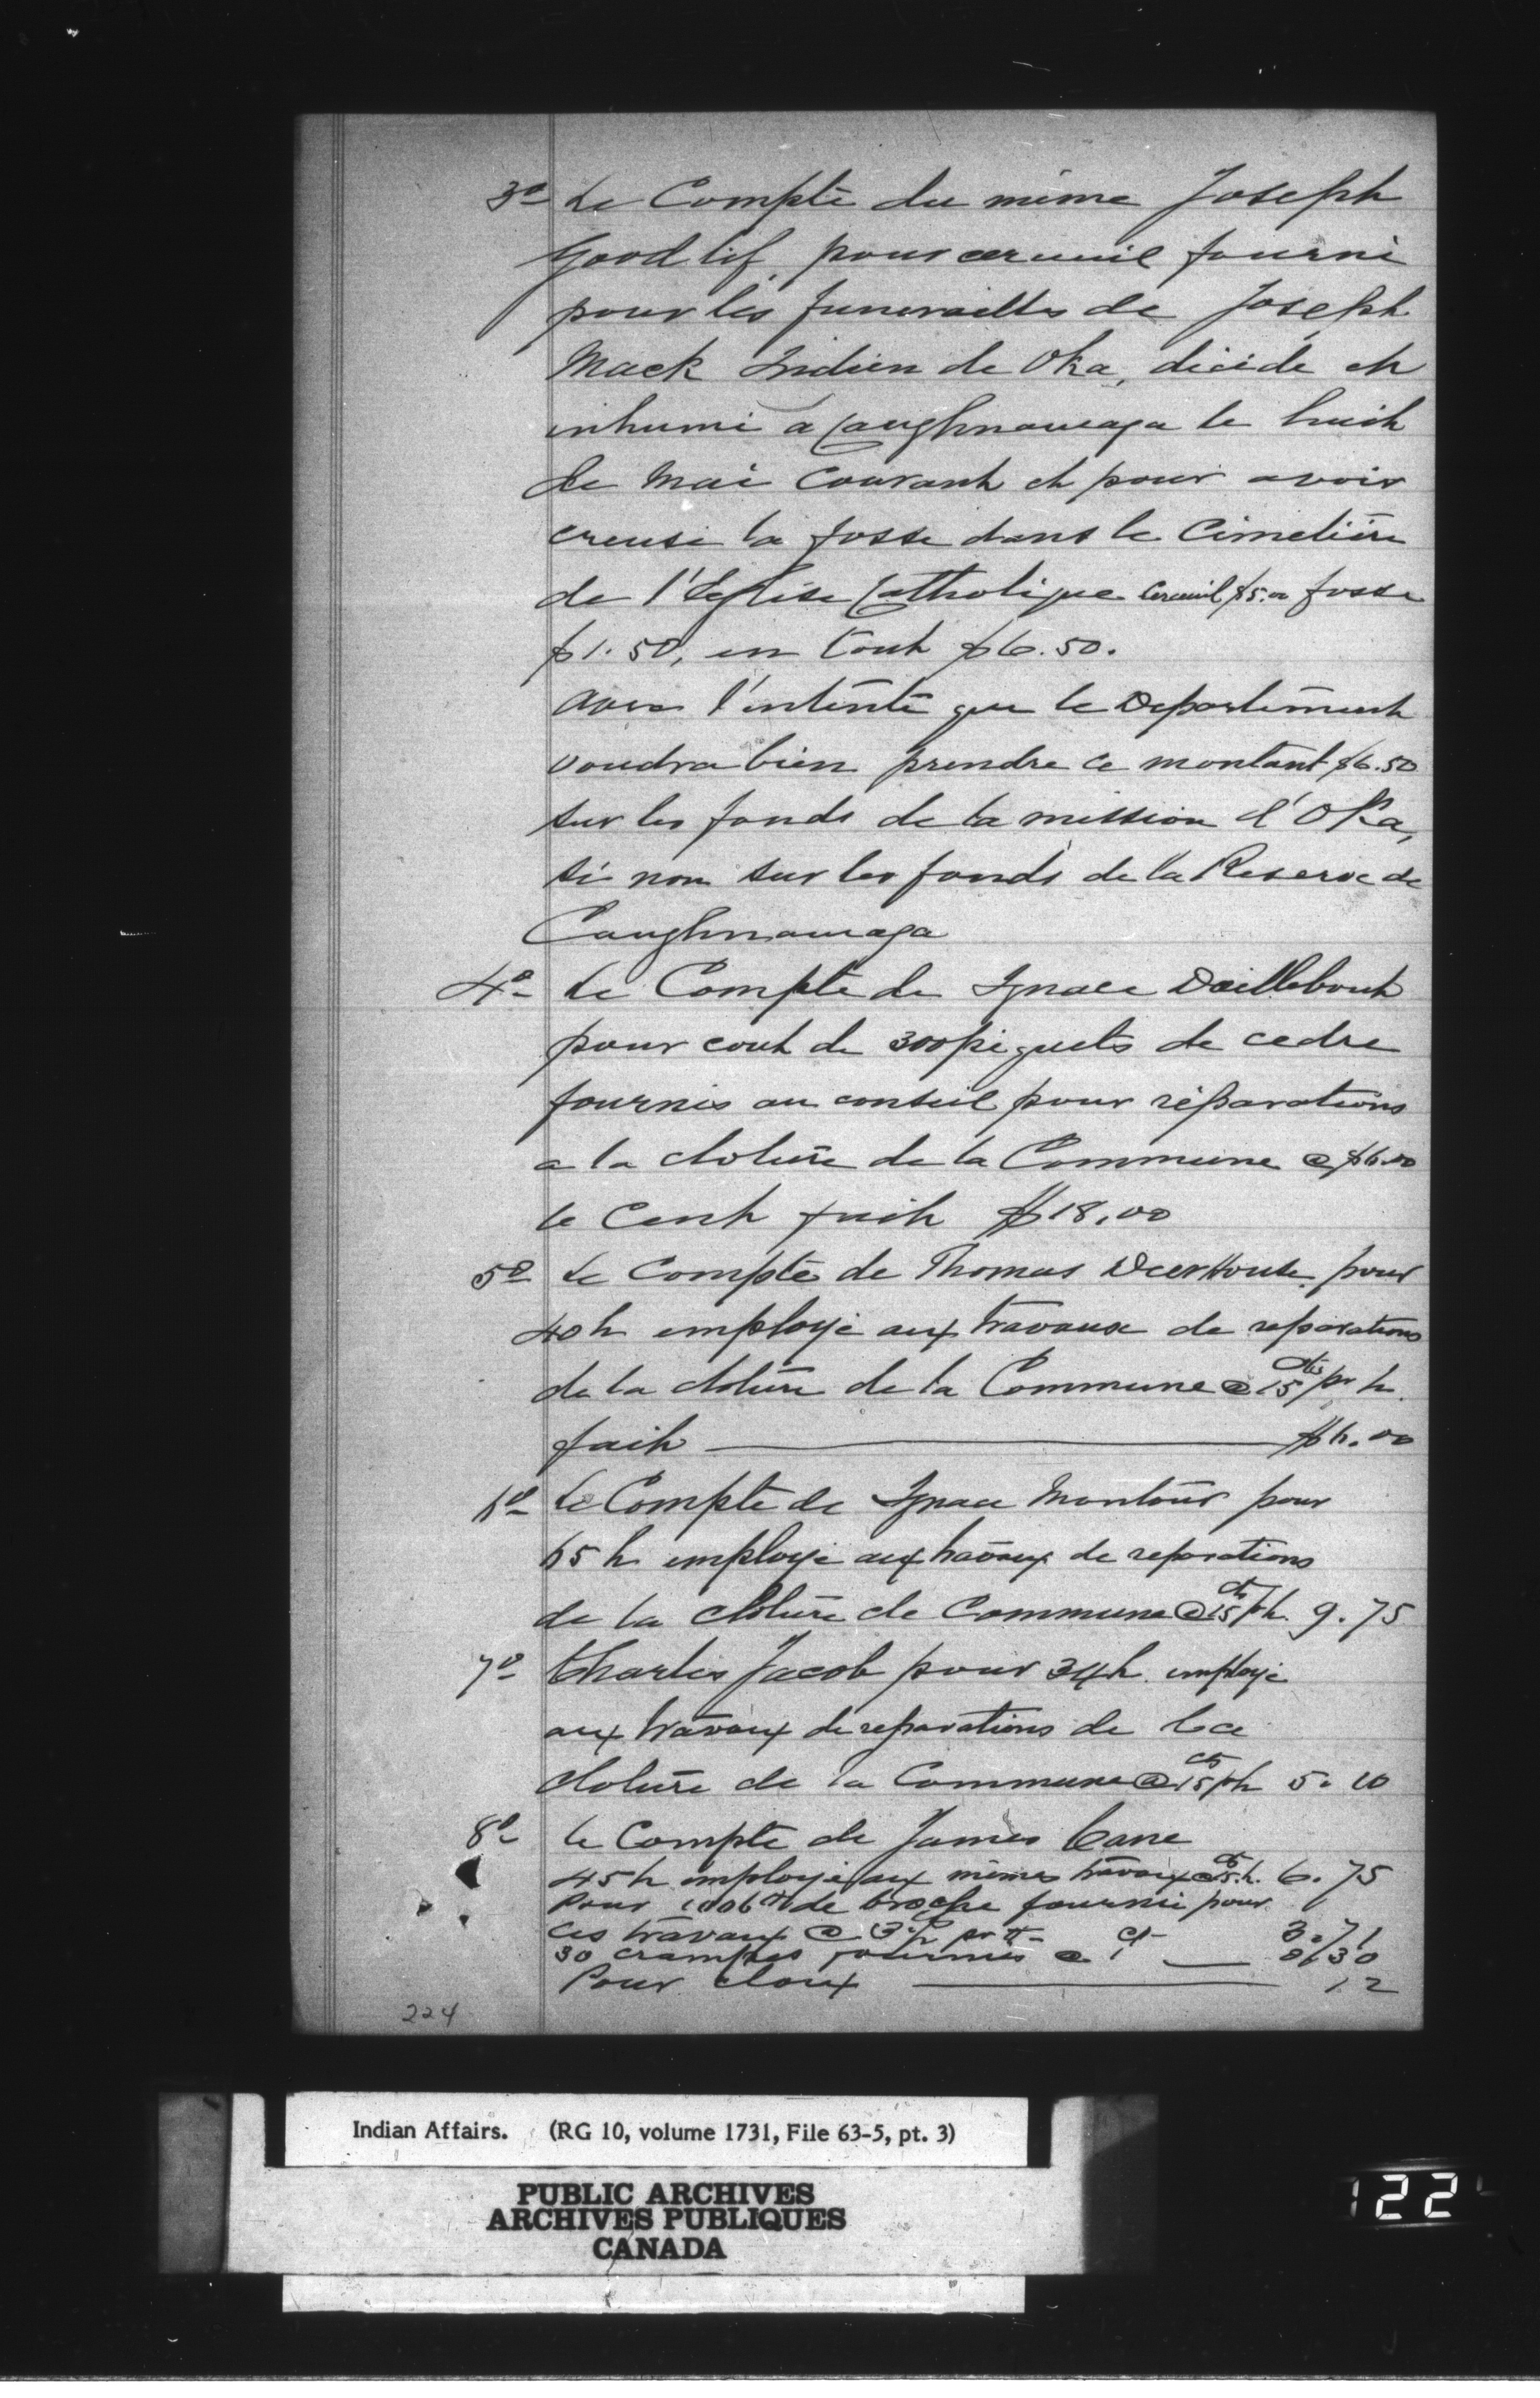 3o Le Compte du même Joseph
Goodlif pour cercueil fourni
pour les funerailles de Joseph
Mack Indien de Oka, décidé et
inhumé a Caughnawaga le huit
de Mai Courant et pour avoir
creusé la fosse dans le Cimetière
de l'Eglise Catholique Cercueil $5.00 fosse
$1.50, en tout $6.50.
Avec l'entente que le Département
voudra bien prendre ce montant $6.50
sur les fonds de la mission d'Oka,
si non sur les fonds de la Reserve de
Caughnawaga
4o Le Compte de Ignace Daillebout
pour cout de 300 piquets de cedre
fournis au conseil pour réparations
a la cloture de la Commune @ $6.00
le Cent fait $18.00
5o Le Compte de Thomas DeerHouse pour
40h employé aux travaux de reparations
de la cloture de la Commune @ 15 cts pr h.
fait $6.00
6o Le Compte de Ignace Montour pour
65h employé aux travaux de reparations
de la cloture de Commune @ 15 cts ph. 9.75
7o Charles Jacob pour 34h. employé
aux travaux de reparations de la
cloture de la Commune @ 15 cts ph 5.10
8o Le Compte de James Cane
45h employé aux mêmes travaux @ 15 cts h. 6.75
Pour 106 lb de broche fournie pour
ces travaux @ 3½ pr lb 3.71
30 crampes fournies @ 1 ct 30
Pour cloux 12
224
Indian Affairs. (RG 10, volume 1731, File 63-5, pt. 3)
PUBLIC ARCHIVES
ARCHIVES PUBLIQUES
CANADA
122